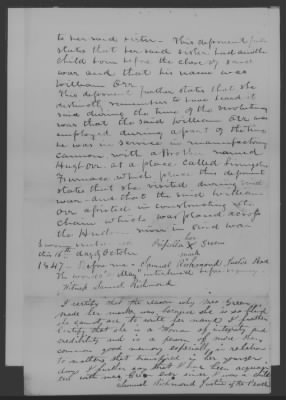 to her said sister - This deponent further
states that her said sister had another
child born before the close of said
war and that his name was
William Orr.
This deponent further states that she
distinctly remembers to have heard it
said during the time of the revolutionary
war that the said William Orr was
employed during a part of the time
he was in service in manufacturing
cannon with a brother named
Hugh Orr at a place called
Furnace which place this deponent
states that she visited during said
war - and that the said William
Orr assisted in constructing the
chain which was placed across
the Hudson river in said war.
her
Priscilla X Green
mark
this 16th day of October
1847 - Before me Samuel Richmond Justice Peace
The words "May" interlined before signing
Witness Samuel Richmond
I certify that the reason why Mrs Green
made her mark, was because she is so blind
she cannot see to write her name, I further
certify that she is a Woman of integrity and
credibility and is a person of more than
common good memory especially in relation
to matters that transpired in her younger
days I further say that I have been acquain
ted with her ever since I was a child
Samuel Richmond Justice of the Peace